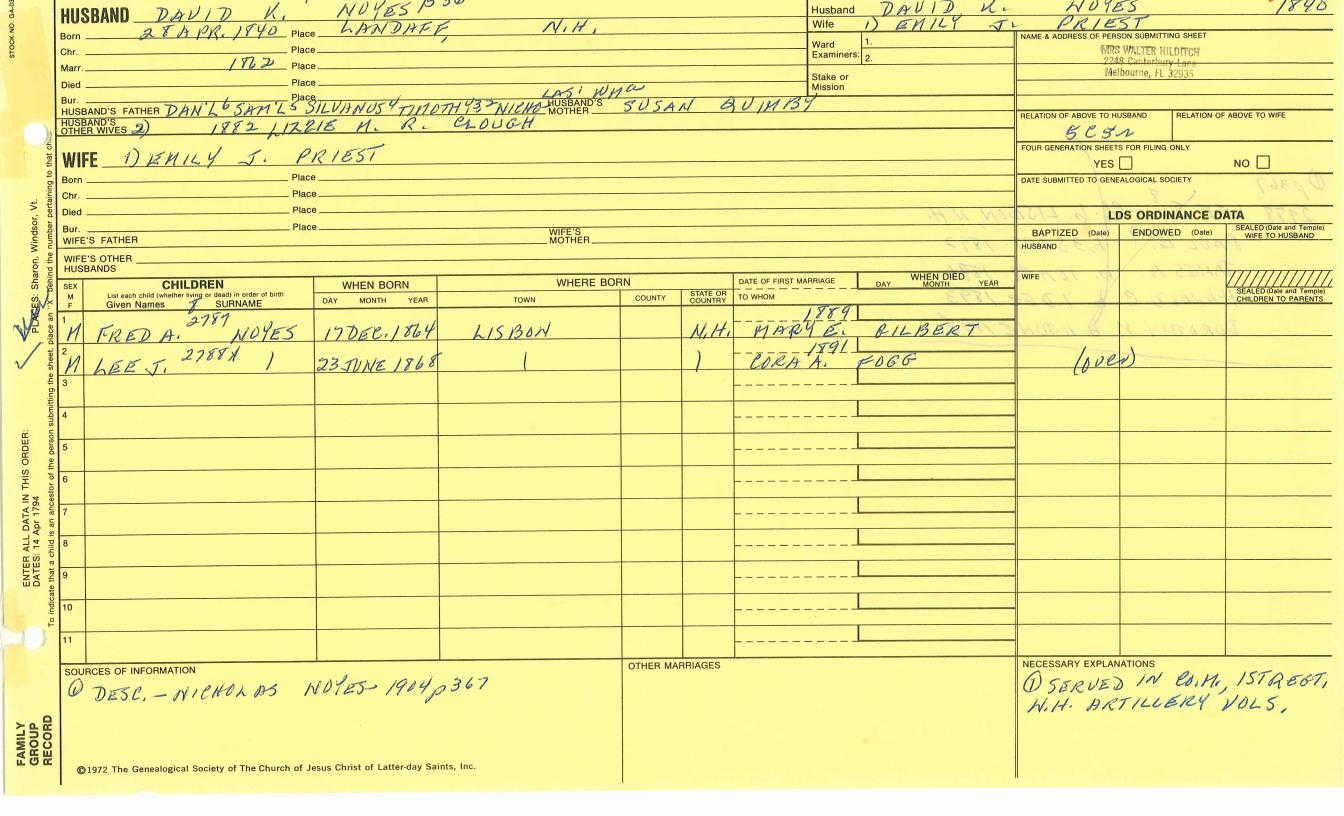 STOCK NO. GA-03
HUSBAND DAVID K. NOYES 1536
Born 28 APR. 1840 Place LANDAFF, N.H.
Chr. Place
Marr. 1862 Place
Died Place
Bur. Place
HUSBAND'S FATHER DAN'L6 SAM'L5 SILVANUS4 TIMOTHY3 2 NICHO LAS1 WMa HUSBAND'S MOTHER SUSAN QUIMBY
HUSBAND'S OTHER WIVES 2) 1882 LIZZIE M. R. CLOUGH
WIFE 1) EMILY J. PRIEST
Born Place
Chr. Place
Died Place
Bur. Place
WIFE'S FATHER WIFE'S MOTHER
WIFE'S OTHER HUSBANDS
Husband DAVID K. NOYES 1840
Wife 1) EMILY J. PRIEST
Ward Examiners: 1.
2.
Stake or Mission
NAME & ADDRESS OF PERSON SUBMITTING SHEET
MRS WALTER HILDITCH
2248 Canterbury Lane
Melbourne, FL 32935
RELATION OF ABOVE TO HUSBAND RELATION OF ABOVE TO WIFE
5C5R
FOUR GENERATION SHEETS FOR FILING ONLY
YES NO
DATE SUBMITTED TO GENEALOGICAL SOCIETY
LDS ORDINANCE DATA
BAPTIZED (Date) ENDOWED (Date) SEALED (Date and Temple) WIFE TO HUSBAND
HUSBAND
WIFE
SEALED (Date and Temple) CHILDREN TO PARENTS
SEX M F
CHILDREN
List each child (whether living or dead) in order of birth
Given Names 8 SURNAME
WHEN BORN
DAY MONTH YEAR
WHERE BORN
TOWN COUNTY STATE OR COUNTRY
DATE OF FIRST MARRIAGE
TO WHOM
WHEN DIED
DAY MONTH YEAR
1 M FRED A. 2787 NOYES 17 DEC. 1864 LISBON N.H. 1889 MARY E. GILBERT
2 M LEE J. 2788X 23 JUNE 1868 1891 CORA A. FOGG (over)
3
4
5
6
7
8
9
10
11
SOURCES OF INFORMATION
① DESC. - NICHOLAS NOYES 1904 p 367
OTHER MARRIAGES
NECESSARY EXPLANATIONS
① SERVED IN CO.M., 1ST REGT.
N.H. ARTILLERY VOLS.
©1972 The Genealogical Society of The Church of Jesus Christ of Latter-day Saints, Inc.
FAMILY GROUP RECORD
ENTER ALL DATA IN THIS ORDER:
DATES: 14 Apr 1794
PLACES: Sharon, Windsor, Vt.
To indicate that a child is an ancestor of the person submitting the sheet, place an "X" behind the number pertaining to that